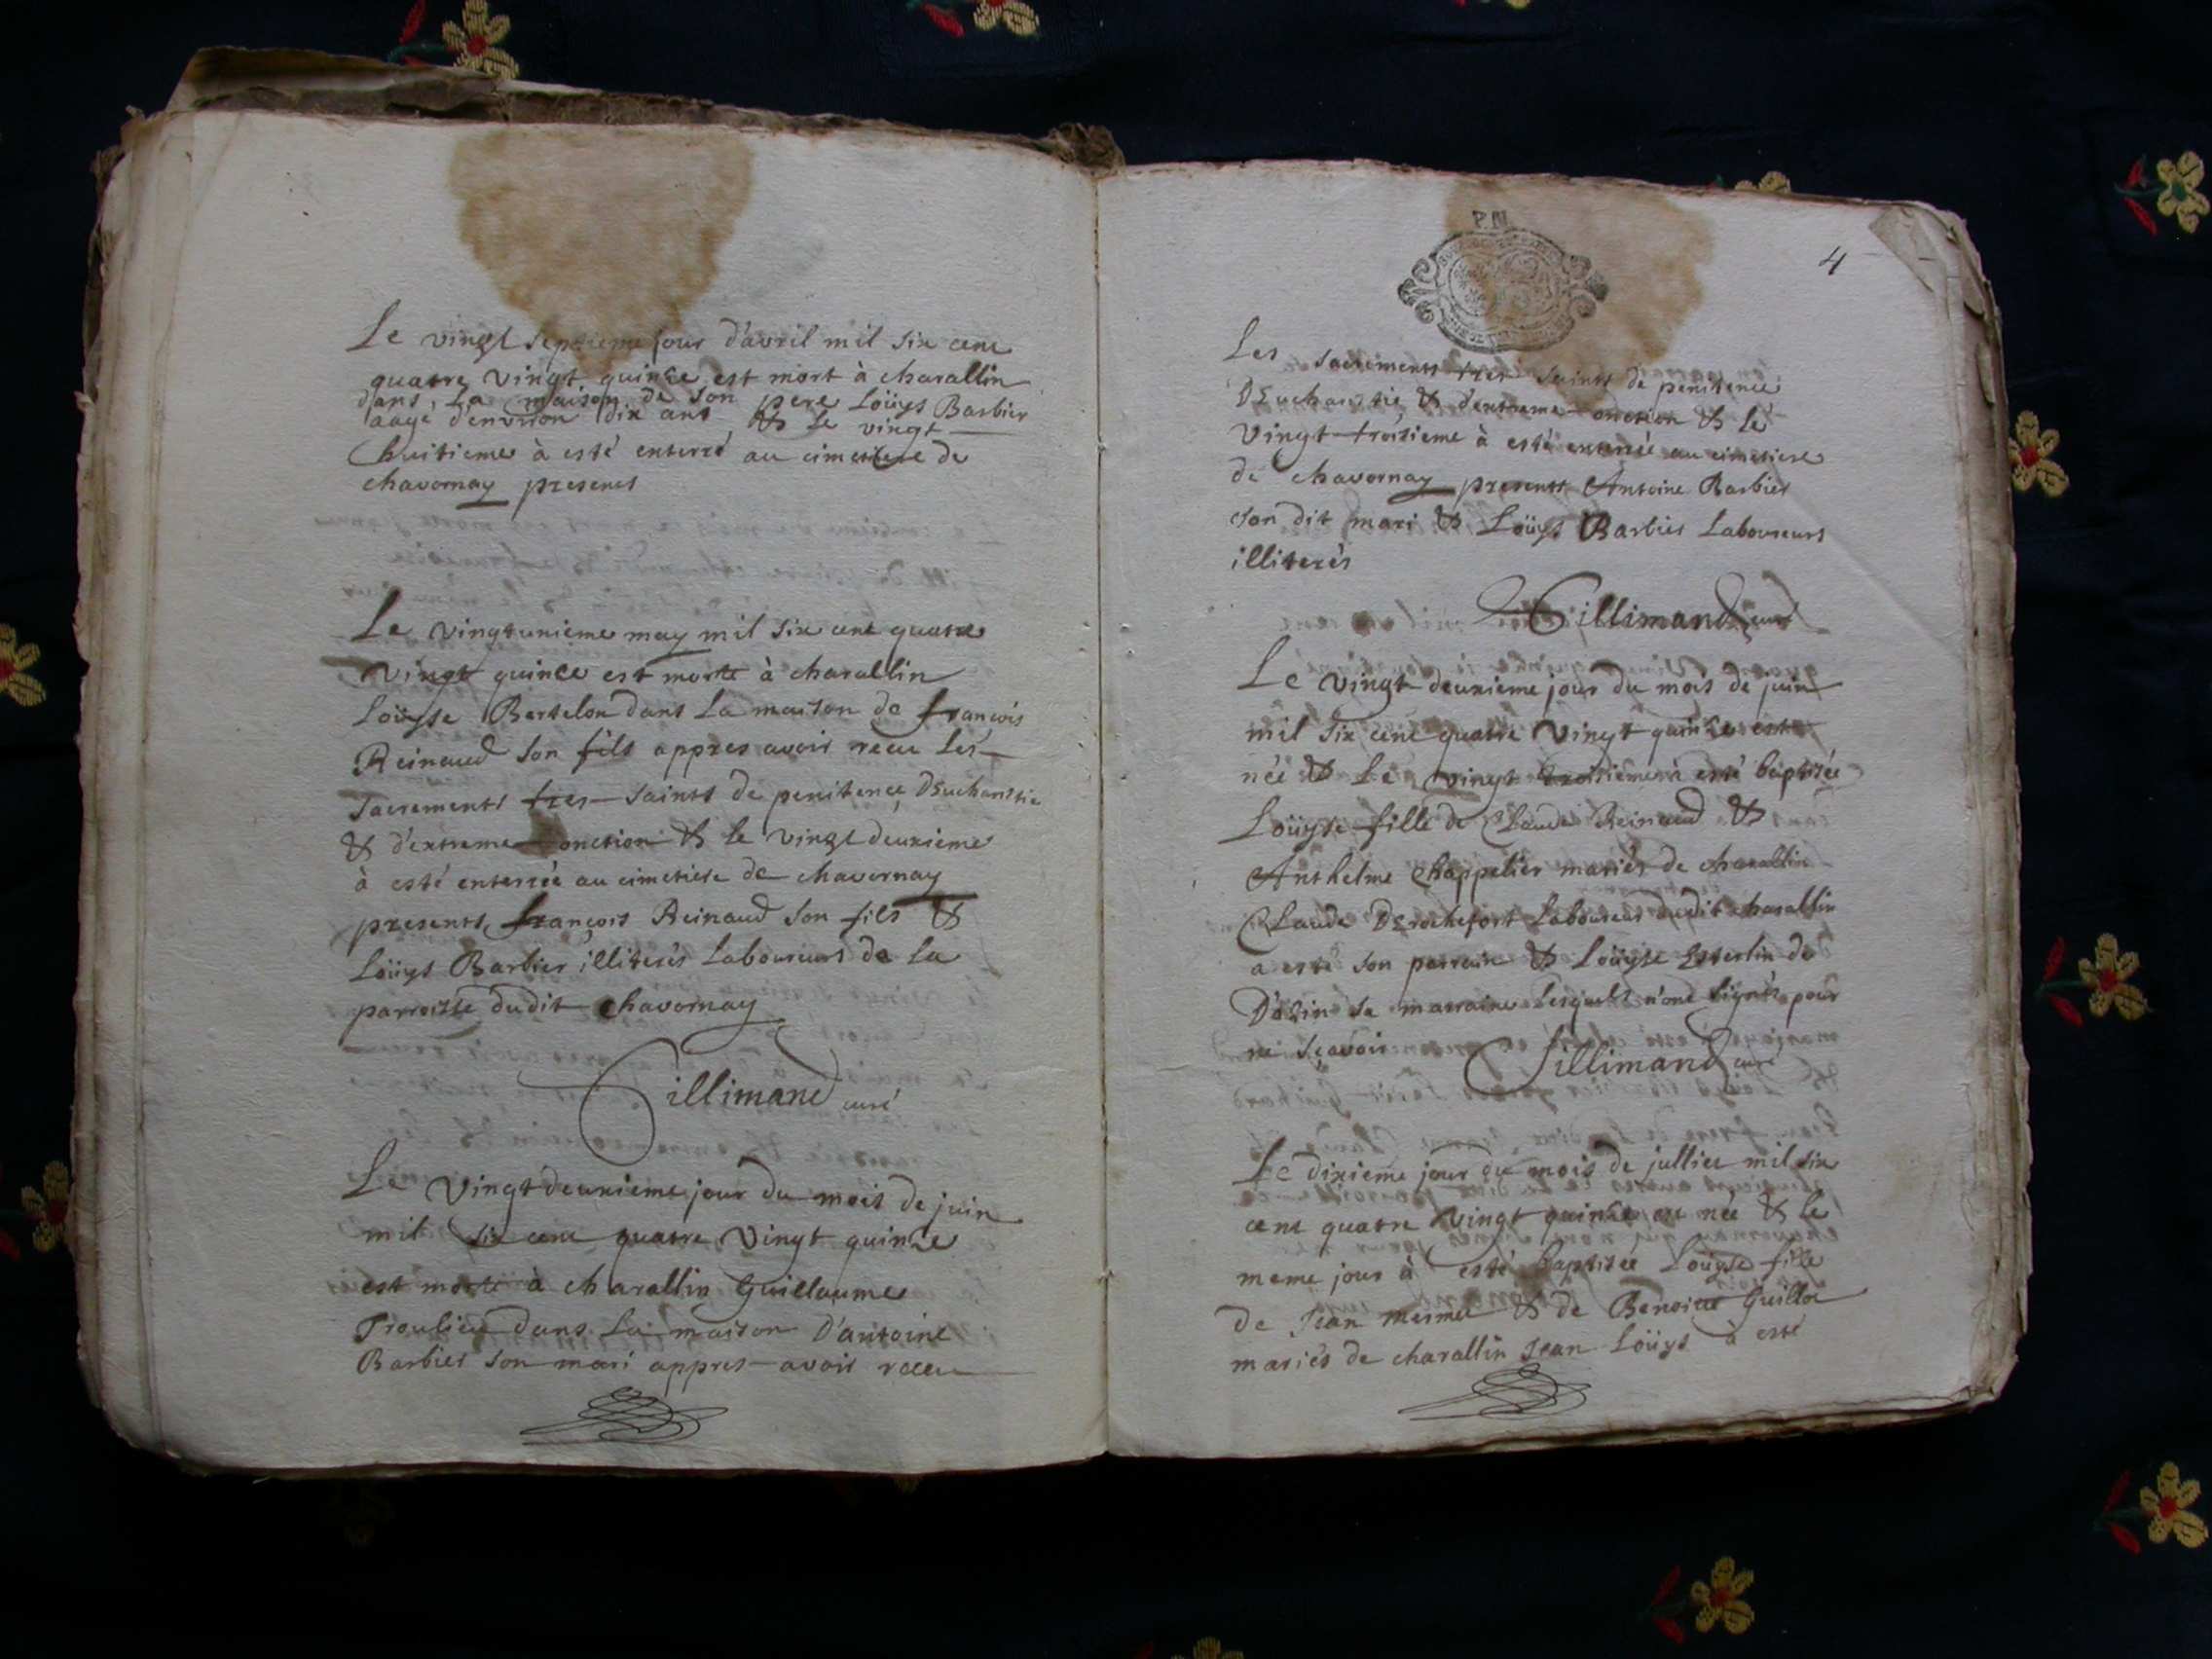 Le vingt septieme jour d'avril mil six cent
quatre vingt quinze est mort à charallin
dans la maison de son pere Loüys Barbier
aagé d'environ dix ans & le vingt
huitieme à esté enterré au cimetiere de
chavornay presents
Le vingtunieme may mil six cent quatre
vingt quinze est morte à charallin
Loüyse Bertelon dans la maison de françois
Reinaud son fils appres avoir receu les
sacrements tres saints de penitence D'Eucharistie
& d'extreme onction & le vingt deuxieme
à esté enterrée au cimetiere de chavornay
presents françois Reinaud son fils &
Loüys Barbier illiterés Laboureurs de la
parroisse dudit chavornay
Tillimand curé
Le vingt deuxieme jour du mois de juin
mil six cent quatre vingt quinze
est morte à charallin Guillaume
Troulieu dans la maison D'antoine
Barbier son mari appres avoir receu
P.N.
4
Les sacrements tres saints de penitence
D'Eucharistie & d'extreme onction & le
vingt troisieme à esté enterrée au cimetiere
de chavornay presents Antoine Barbier
son dit mari & Loüys Barbier Laboureurs
illiterés
Tillimand curé
Le vingt deuxieme jour du mois de juin
mil six cent quatre vingt quinze est
née & le vingt troisieme à esté baptisée
Loüyse fille de Claude Reinaud &
Anthelme Chappelier mariés de charallin
Claude Derochefort Laboureur dudit charallin
a esté son parrain & Loüyse Esterlin de
D'azin sa marraine lesquels n'ont signés pour
ne sçavoir Tillimand curé
Le dixieme jour du mois de julliet mil six
cent quatre vingt quinze est née & le
meme jour à esté baptisée Loüyse fille
de Jean mermet & de Benoite Guillot
mariés de charallin Jean Loüys à esté